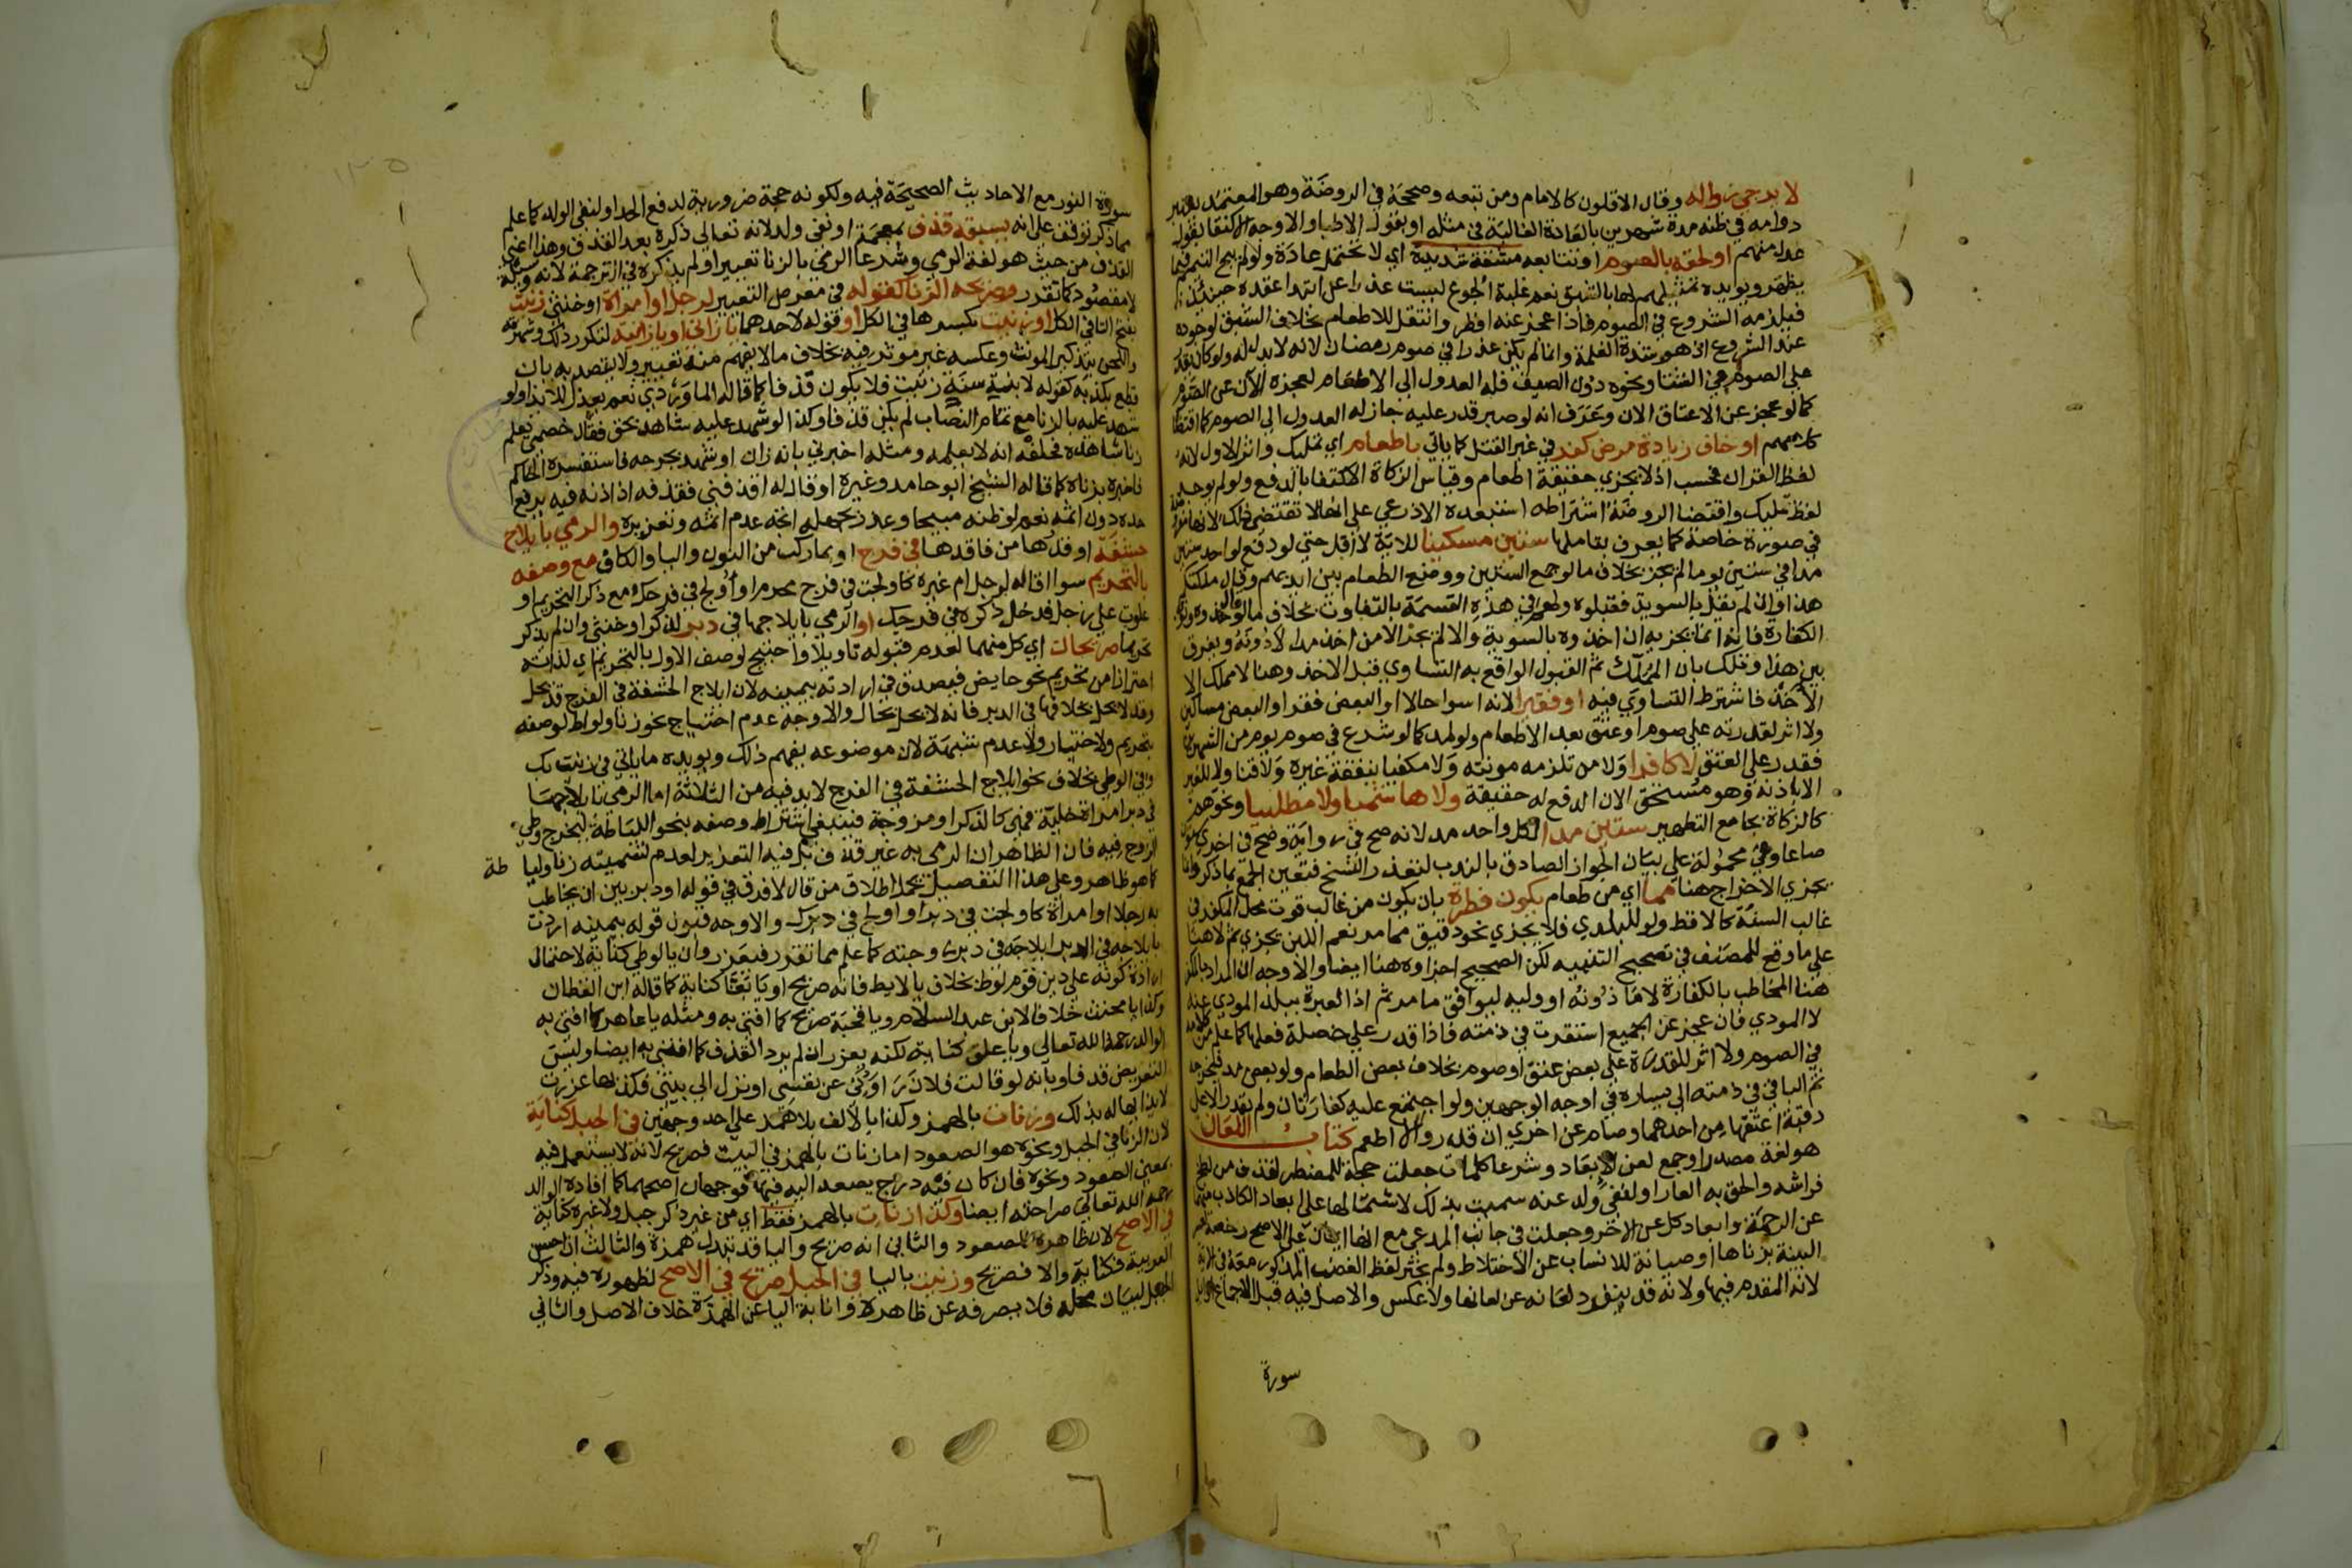 لا يرجى زواله وقال الاقلون كالامام ومن تبعه وصححه في الروضة وهو المعتمد يعتبر
دوامه في ظنه مدة شهرين بالعادة الغالبة في مثله او بقول الاطبا والاوجه الاكتفا بقول
عدل منهم او لحقه بالصوم او تتابعه مشقة شديدة اي لا تحتمل عادة ولو لم تبح التيمم فيما
يظهر ويويده تمثيلهم لها بالشبق نعم غلبة الجوع ليست عذرا على ابتدا عقده حينئذ
فيلزمه الشروع في الصوم فاذا عجز عنه افطر وانتقل للاطعام بخلاف الشبق لوجوده
عند الشروع اذ هو شدة الغلمة وانما لم يكن عذرا في صوم رمضان لانه لا بدل له ولو كان يقدر
على الصوم في الشتا ونحوه دون الصيف فله العدول الى الاطعام لعجزه الان عن الصوم
كما لو عجز عن الاعتاق الان وعرف انه لو صبر قدر عليه جاز له العدول الى الصوم كما اقتضاه
كلامهم او خاف زيادة مرض كفر في غير القتل كما ياتي باطعام اي تمليك واثر الاول لانه
لفظ القران فحسب اذ لا يجزي حقيقة اطعام وقياس الزكاة الاكتفا بالدفع ولو لم يوجد
لفظ تمليك واقتضا الروضة اشتراطه استبعده الاذرعي على انها لا تقتضي ذلك لانها
في صورة خاصة كما يعرف بتاملها ستين مسكينا للاية لا اقل حتى لو دفع لواحد ستين
مدا في ستين يوما لم يجز بخلاف ما لو جمع الستين ووضع الطعام بين ايديهم وقال ملكتكم
هذا وان لم يقل بالسوية فقبلوه ولهم في هذه القسمة بالتفاوت بخلاف ما لو
الكفارة فانه انما يجزيه ان اخذوه بالسوية والا لم يجز الا من اخذ مدا لا دونه ويفرق
بين هذا وتلك بان المملك ثم القبول الواقع به التساوي قبل الاخذ وهنا لا مملك الا
الاخذ فاشترط التساوي فيه او فقيرا لانه اسوا حالا او البعض فقرا والبعض مساكين
ولا اثر لقدرته على صوم او عتق بعد الاطعام ولو لمد كما لو شرع في صوم يوم من الشهرين
فقدر على العتق لا كافرا ولا من تلزمه مونته ولا مكفيا بنفقة غيره ولا قنا ولا للغير
الا باذنه وهو مستحق لان الدفع له حقيقة ولا هاشميا ولا مطلبيا ونحوهم
كالزكاة بجامع التطهير ستين مدا لكل واحد مد لانه صح في رواية وصح في اخرى
صاعا وهي محمولة على بيان الجواز الصادق بالندب لتعذر النسخ فتعين الجمع بما ذكر وانما
يجزي الاخراج هنا مما اي من طعام يكون فطرة بان يكون من غالب قوت محل المكفر في
غالب السنة كالاقط ولو للبلدي فلا يجزي نحو دقيق مما مر نعم اللبن يجزي ثم لا هنا
على ما وقع للمصنف في تصحيح التنبيه لكن الصحيح اجزاوه هنا ايضا والاوجه ان المراد بالمكفر
هنا المخاطب بالكفارة لا ماذونه او وليه ليوافق ما مر ثم اذ العبرة ببلد المودي عنه
لا المودي فان عجز عن الجميع استقرت في ذمته فاذا قدر على خصلة فعلها كما علم من
في الصوم ولا اثر للقدرة على بعض عتق او صوم بخلاف بعض الطعام ولو بعض مد فيخرجه
ثم الباقي في ذمته الى يساره في اوجه الوجهين ولو اجتمع عليه كفارتان ولم يقدر الا على
رقبة اعتقها عن احداهما وصام عن اخرى ان قدر والا اطعم كتاب اللعان
هو لغة مصدر او جمع لعن الابعاد وشرعا كلمات جعلت حجة للمضطر لقذف من لطخ
فراشه والحق به العار او لنفي ولد عنه سميت بذلك لاشتمالها على ابعاد الكاذب منهما
عن الرحمة وابعاد كل عن الاخر وجعلت في جانب المدعي مع انها ايمان على الاصح رخصة
البينة بزناها او صيانة للانساب عن الاختلاط ولم يختر لفظ الغضب المذكور معه في الاية
لانه المقدم فيها ولانه قد ينفرد لعانه عن لعانها ولا عكس والاصل فيه قبل الاجماع
سورة
سورة النور مع الاحاديث الصحيحة فيه ولكونه حجة ضرورية لدفع الحد او لنفي الولد كما علم
مما ذكر توقف على انه يسبقه قذف بمعجمة او نفي ولد لانه تعالى ذكره بعد القذف وهذا اعني
القذف من حيث هو لغة الرمي وشرعا الرمي بالزنا تعييرا ولم يذكره في الترجمة لانه وسيلة
لا مقصود كما تقدر وصريحه الزنا كقوله في معرض التعيير لرجل او امراة او خنثى زنيت
بفتح التا في الكل او زنيت بكسرها في الكل او قوله لاحدهما يا زاني او يا زانية لتكرر ذلك وشهرته
واللحن بتذكير المونث وعكسه غير موثر فيه بخلاف ما لا يفهم منه تعيير ولا يقصد به بان
قطع بكذبه كقوله لابنة سنة زنيت فلا يكون قذفا كما قاله الماوردي نعم يعزر للايذا ولو
شهد عليه بالزنا مع تمام النصاب لم يكن قذفا وكذا لو شهد عليه شاهد بحق فقال خصمي يعلم
زنا شاهده فحلفه انه لا يعلمه ومثله اخبرني بانه زان او شهد بجرحه فاستفسره الحاكم
فاخبره بزناه كما قاله الشيخ ابو حامد وغيره او قال له اقذفني فقذفه اذ اذنه فيه يرفع
حده دون اثمه نعم لو ظنه مبيحا وعذر بجهله اتجه عدم اثمه وتعزيره والرمي بايلاج
حشفة او قدرها من فاقدها في فرج او بما ركب من النون واليا والكاف مع وصفه
بالتحريم سوا اقاله لرجل ام غيره كاولجت في فرج محرم او اولج في فرجك مع ذكر التحريم او
علوت على رجل فدخل ذكره في فرجك او الرمي بايلاجها في دبر لذكر او خنثى وان لم يذكر
تحريما صريحان اي كل منهما لعدم قبوله تاويلا واحتيج لوصف الاول بالتحريم اي لذاته
احترازا من تحريم نحو حايض فيصدق في ارادته بيمينه لان ايلاج الحشفة في الفرج قد يحل
وقد لا يحل بخلافها في الدبر فانه لا يحل بحال والاوجه عدم احتياج نحو زنا ولواط لوصفه
بتحريم ولا اختيار ولا عدم شبهة لان موضوعه يفهم ذلك ويويده ما ياتي في زنيت بك
وفي الوطي بخلاف نحو ايلاج الحشفة في الفرج لابد فيه من الثلاثة اما الرمي بايلاجها
في دبر امراة خلية فهي كالذكر او مزوجة فينبغي اشتراط وصفه بنحو اللياطة ليخرج وطي
الزوج فيه فان الظاهر ان الرمي به غير قذف بل فيه التعزير لعدم تسميته زنا وليا طة
كما هو ظاهر وعلى هذا التفصيل يحمل اطلاق من قال لا فرق في قوله او دبر بين ان يخاطب
به رجلا او امراة كاولجت في دبر او اولج في دبرك والاوجه قبول قوله بيمينه اردت
بايلاجه في الدبر ايلاجه في دبر زوجته كما علم مما تقرر فيعزر وان يا لوطي كناية لاحتمال
ارادة كونه على دين قوم لوط بخلاف يا لايط فانه صريح او يا بغا كناية كما قاله ابن القطان
وكذا يا مخنث خلافا لابن عبد السلام ويا قحبة صريح كما افتى به ومثله يا عاهر كما افتى به
الوالد رحمه الله تعالى ويا علق كناية لكنه يعزر ان لم يرد القذف كما افتى به ايضا وليس
التعريض قذفا وبانه لو قالت فلان راودني عن نفسي او نزل الى بيتي وكذبها عزرت
لايذائها له بذلك وزنات بالهمز وكذا بالالف بلا همز على احد وجهين في الجبل كناية
لان الزنا في الجبل ونحوه هو الصعود اما زنات بالهمز في البيت فصريح لانه لا يستعمل فيه
بمعنى الصعود ونحوه فان كان فيه درج يصعد اليه فيها فوجهان اصحهما كما افاده الوالد
رحمه الله تعالى صراحته ايضا وكذا زنات بالهمز فقط اي من غير ذكر جبل ولا غيره كناية
في الاصح لان ظاهره الصعود والثاني انه صريح واليا قد تبدل همزة والثالث ان احسن
العربية فكناية والا فصريح وزنيت باليا في الجبل صريح في الاصح لظهوره فيه وذكر
الجبل لبيان محله فلا يصرفه عن ظاهره وانابة اليا عن الهمزة خلاف الاصل والثاني